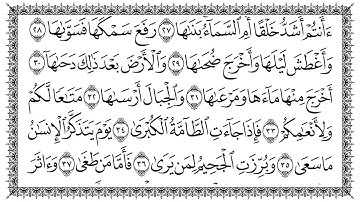 ءَأَنتُمْ أَشَدُّ خَلْقًا أَمِ ٱلسَّمَآءُ بَنَىٰهَا ٢٧ رَفَعَ سَمْكَهَا فَسَوَّىٰهَا ٢٨
وَأَغْطَشَ لَيْلَهَا وَأَخْرَجَ ضُحَىٰهَا ٢٩ وَٱلْأَرْضَ بَعْدَ ذَٰلِكَ دَحَىٰهَآ ٣٠
أَخْرَجَ مِنْهَا مَآءَهَا وَمَرْعَىٰهَا ٣١ وَٱلْجِبَالَ أَرْسَىٰهَا ٣٢ مَتَٰعًا لَّكُمْ
وَلِأَنْعَٰمِكُمْ ٣٣ فَإِذَا جَآءَتِ ٱلطَّآمَّةُ ٱلْكُبْرَىٰ ٣٤ يَوْمَ يَتَذَكَّرُ ٱلْإِنسَٰنُ
مَا سَعَىٰ ٣٥ وَبُرِّزَتِ ٱلْجَحِيمُ لِمَن يَرَىٰ ٣٦ فَأَمَّا مَن طَغَىٰ ٣٧ وَءَاثَرَ